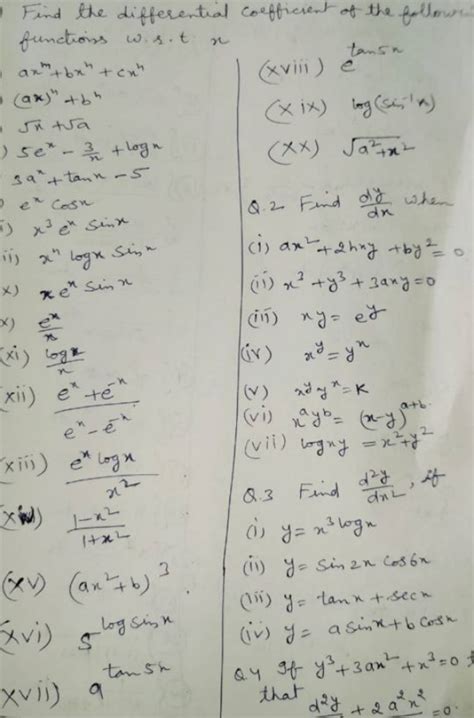 Find the differential coefficient of the
functions w.r.t. x
axᵐ + bxⁿ + cxⁿ
(ax)ⁿ + bⁿ
√x + √a
) 5eˣ - 3/x + logx
3aˣ + tanx - 5
eˣ cosx
) x³ eˣ sinx
ii) xⁿ logx sinx
x) x eˣ sinx
x) eˣ/x
(xi) logx/x
(xii) eˣ + e⁻ˣ / eˣ - e⁻ˣ
(xiii) eˣ logx / x²
1-x² / 1+x²
(xv) (ax² + b)³
(xvi) 5^logsinx
(xvii) a^tan5x
(xviii) e^tan5x
(xix) log(sin⁻¹x)
(xx) √a²+x²
Q.2 Find dy/dx when
(i) ax² + 2hxy + by² = 0
(ii) x³ + y³ + 3axy = 0
(iii) xy = eʸ
(iv) xʸ = yˣ
(v) xʸ yˣ = K
(vi) xᵃyᵇ = (x-y)ᵃ⁺ᵇ
(vii) logxy = x² + y²
Q.3 Find d²y/dx², if
(i) y = x³ logx
(ii) y = sin2x cos6x
(iii) y = tanx + secx
(iv) y = a sinx + b cosx
Q4 If y³ + 3ax² + x³ = 0
that
d²y + 2a²x² = 0.